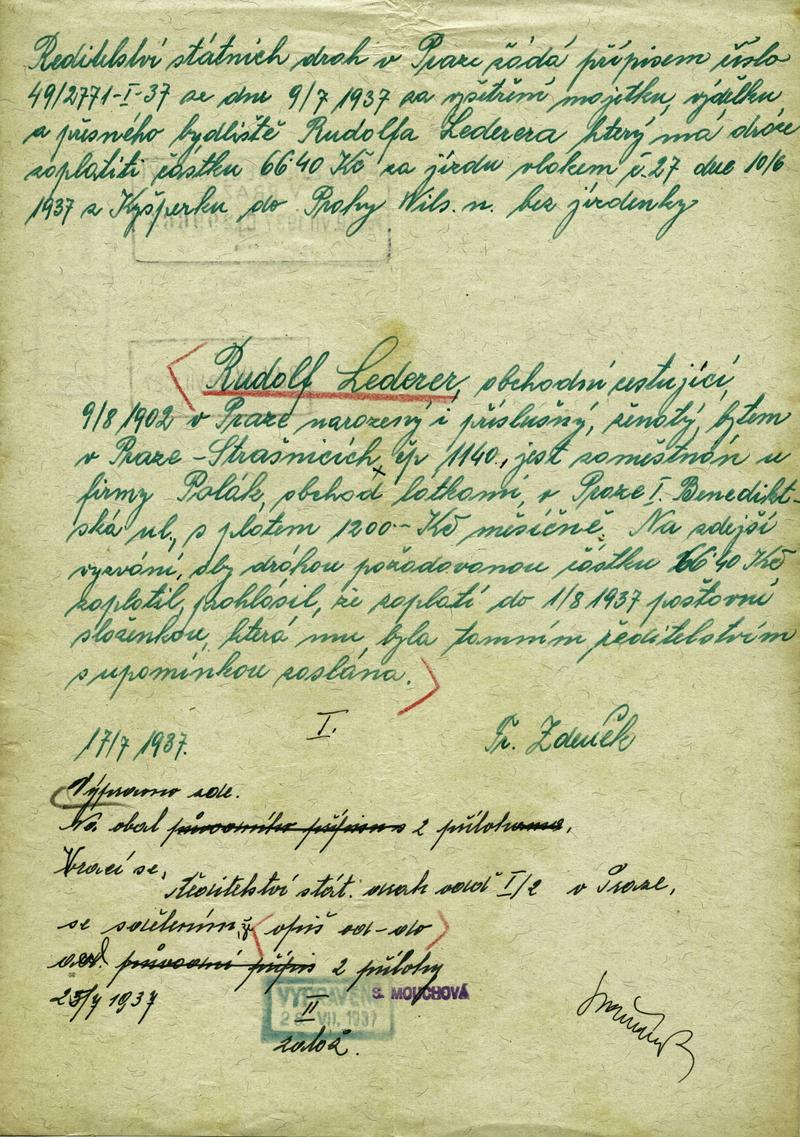 Ředitelství státních drah v Praze žádá přípisem číslo
49/2771-I-37 ze dne 9/7 1937 za vyšetření majetku, výdělku
a přesného bydliště Rudolfa Lederera který má dráze
zaplatiti částku 66·40 Kč za jízdu vlakem č. 27 dne 10/6
1937 z Kyšperku do Prahy Wils. n. bez jízdenky
Rudolf Lederer, obchodní cestující,
9/8 1902 v Praze narozený i příslušný, ženatý, bytem
v Praze-Strašnicích, čp 1140, jest zaměstnán u
firmy Polák, obchod látkami, v Praze I. Benedikt-
ská ul., s platem 1200·- Kč měsíčně. Na zdejší
vyzvání, aby dráhou požadovanou částku 66·40 Kč
zaplatil, prohlásil, že zaplatí do 1/8 1937 poštovní
složenkou, která mu byla tamním ředitelstvím
s upomínkou zaslána.
I.
17/7 1937. Zdeněk
Výpravno zde.
Na obal průvodního přípisu s 2 přílohama,
Vrací se,
Ředitelství stát. drah odd I/2 v Praze,
se sdělením, že opiš od-do
průvodní přípis 2 přílohy
1937
VYPRAVENO S. MOUCHOVÁ
II
VII. 1937
založ.